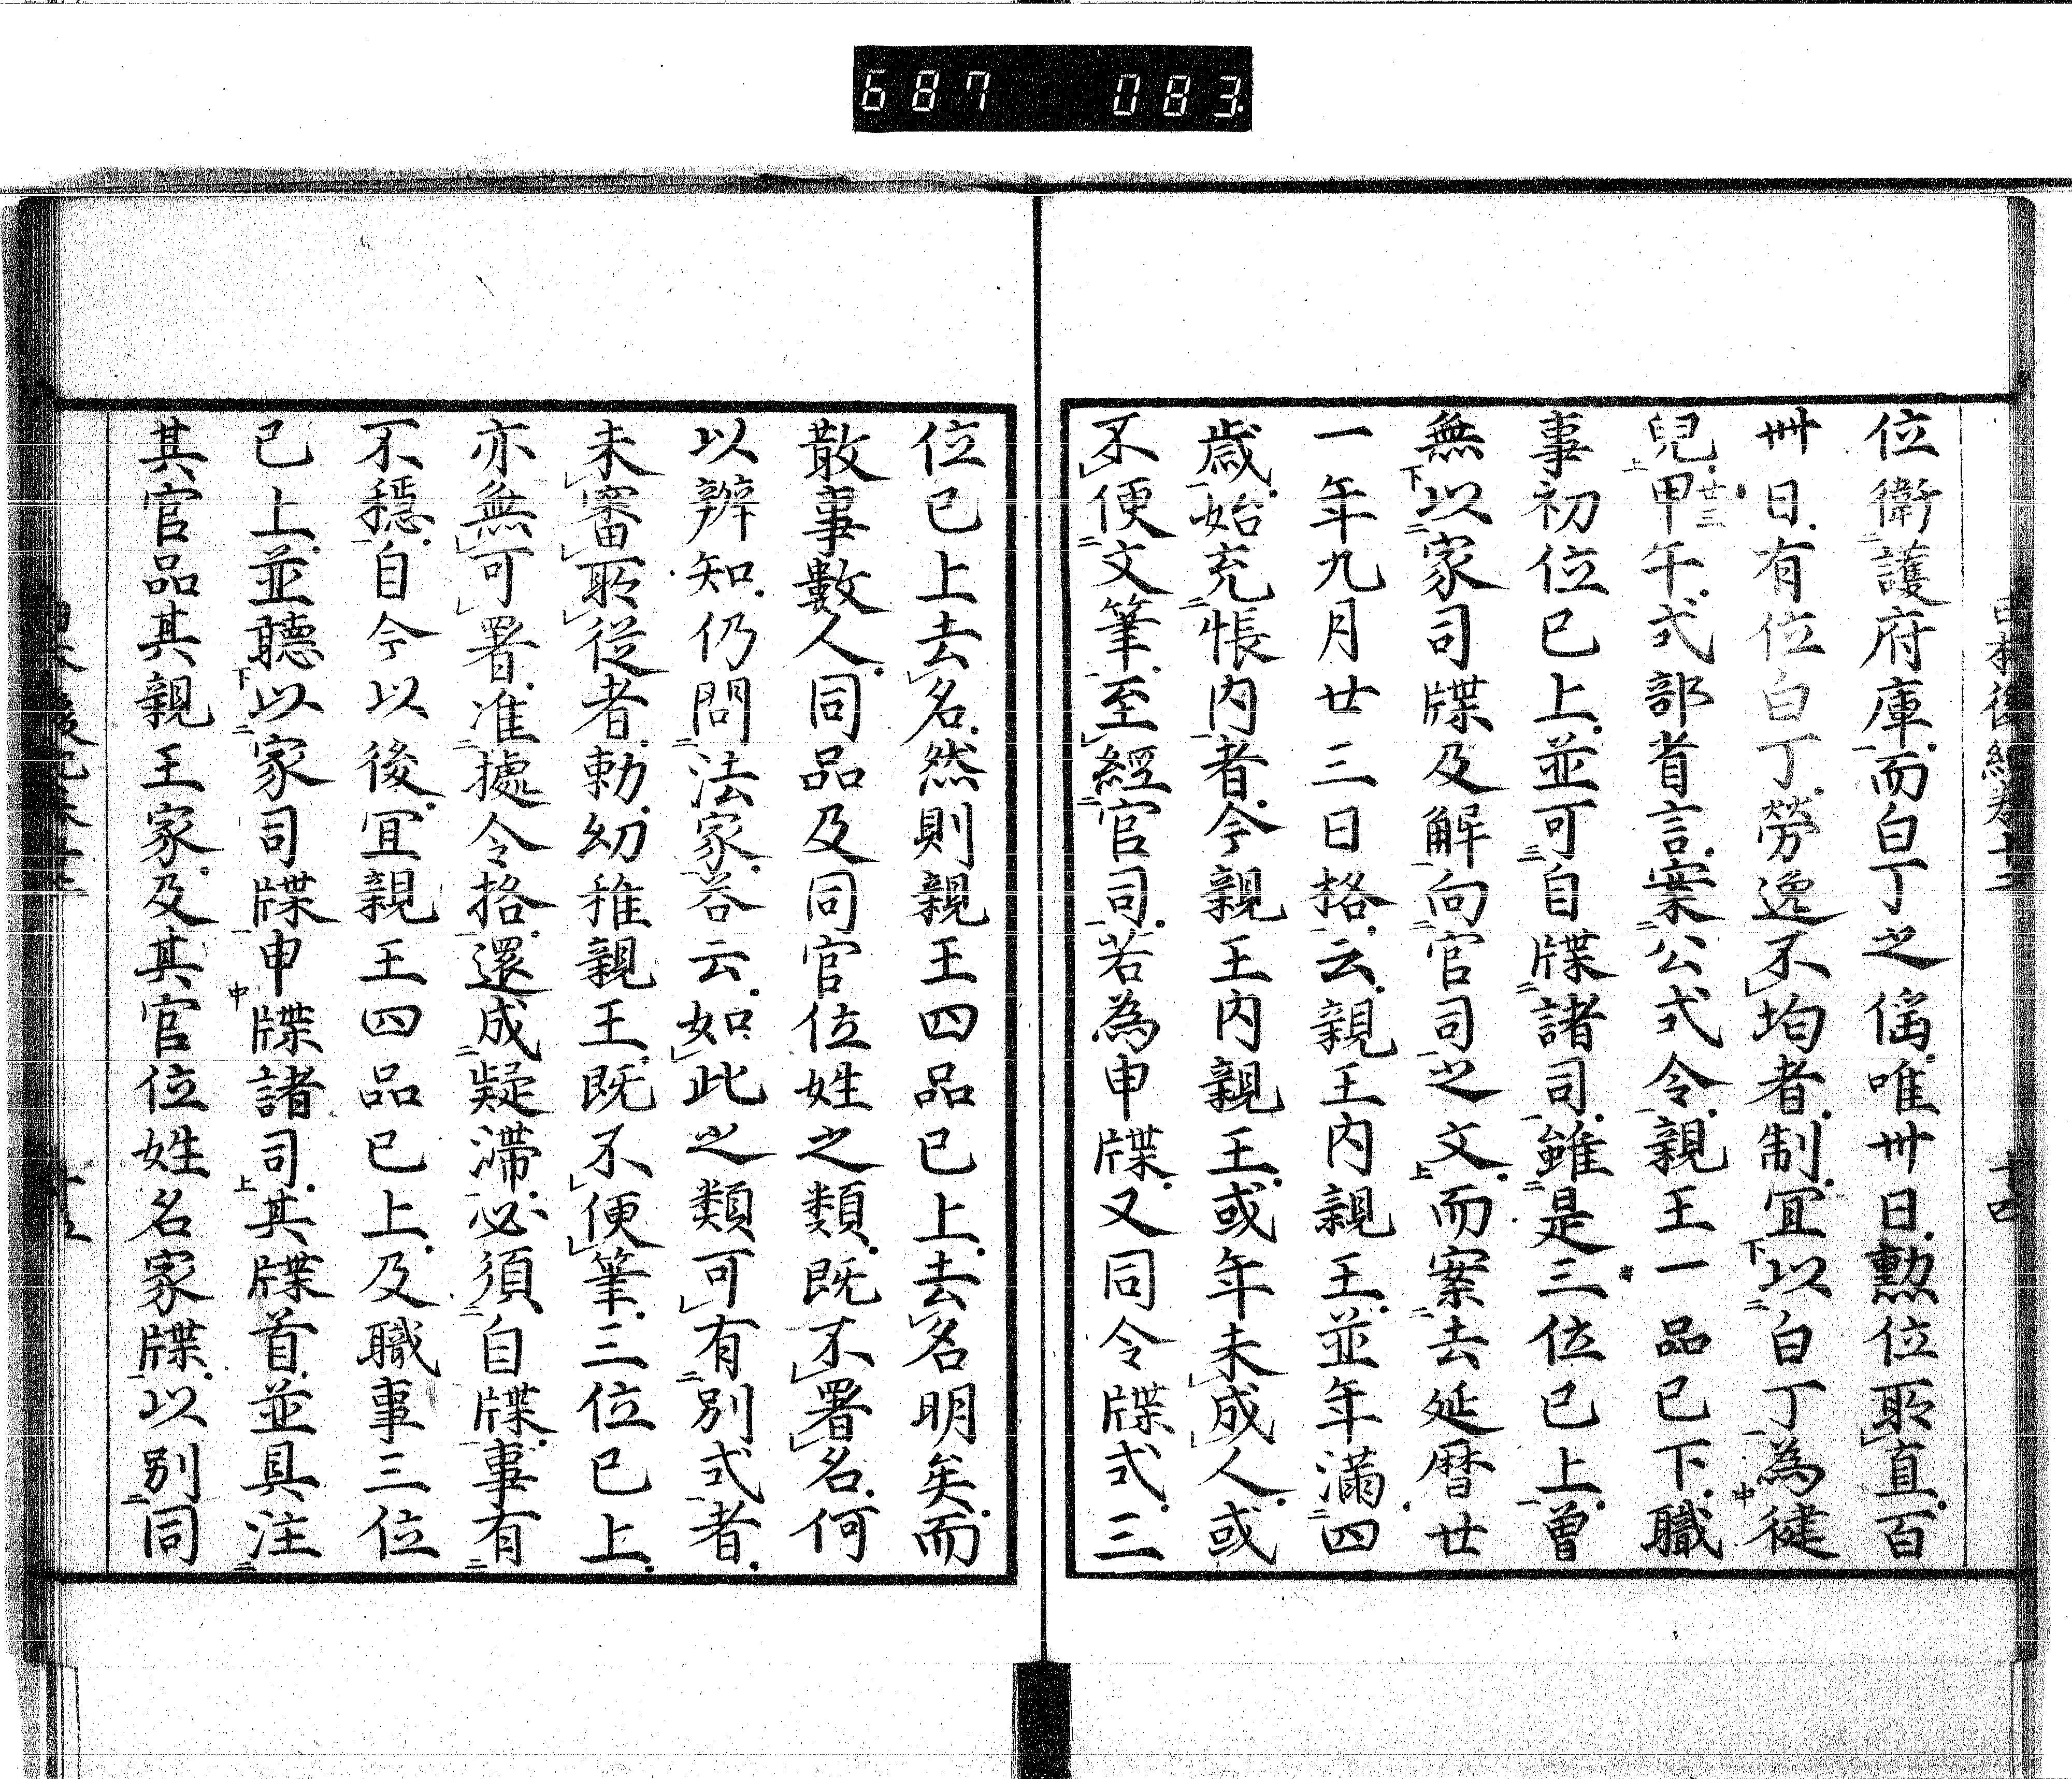 687 083
日本後紀卷十二 十四
位衛護府庫而白丁之徭唯卅日勲位所直百
卅日有位白丁勞逸不均者制宜以白丁為健
兒甲午式部省言案公式令親王一品已下職
廿三
事初位已上並可自牒諸司雖是三位已上曾
無以家司牒及解向官司之文而案去延暦廿
一年九月廿三日格云親王内親王並年滿四
歳始充帳内者今親王内親王或年未成人或
不便文筆至經官司若為申牒又同令牒式三
位已上去名然則親王四品已上去名明矣而
散事數人同品及同官位姓之類既不署名何
以辨知仍問法家答云如此之類可有別式者
未審所從者勅幼稚親王既不便筆三位已上
亦無可署准據令格還成疑滯必須自牒事有
不穏自今以後宜親王四品已上及職事三位
已上並聽以家司牒申牒諸司其牒首並具注
其官品其親王家及其官位姓名家牒以別同